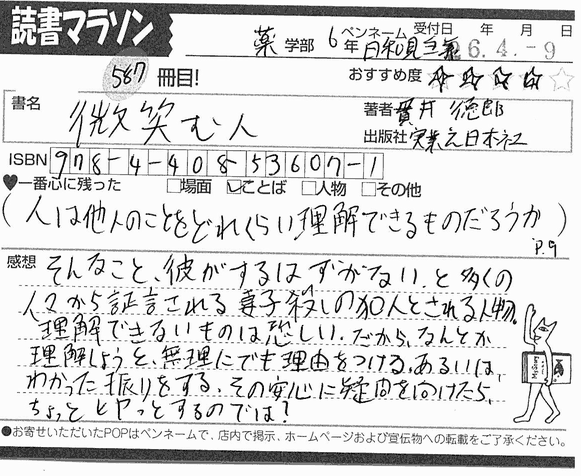 読書マラソン
薬 学部 6 年 ペンネーム 日和見主義 受付日 年 月 日
6.4.-9
587 冊目!
おすすめ度 ★★★★☆
書名 微笑む人
著者 貫井 徳郎
出版社 実業之日本社
ISBN 978-4-408-53607-1
♥一番心に残った □場面 ☑ことば □人物 □その他
(人は他人のことをどれくらい理解できるものだろうか)
P.9
感想 そんなこと、彼がするはずがない、と多くの
人々から証言される妻子殺しの犯人とされる人物。
理解できないものは恐しい。だから、なんとか
理解しようと、無理にでも理由をつける。あるいは、
わかった振りをする。その安心に疑問を向けたら、
ちょっとヒヤっとするのでは?
●お寄せいただいたPOPはペンネームで、店内で掲示、ホームページおよび宣伝物への転載をご了承ください。